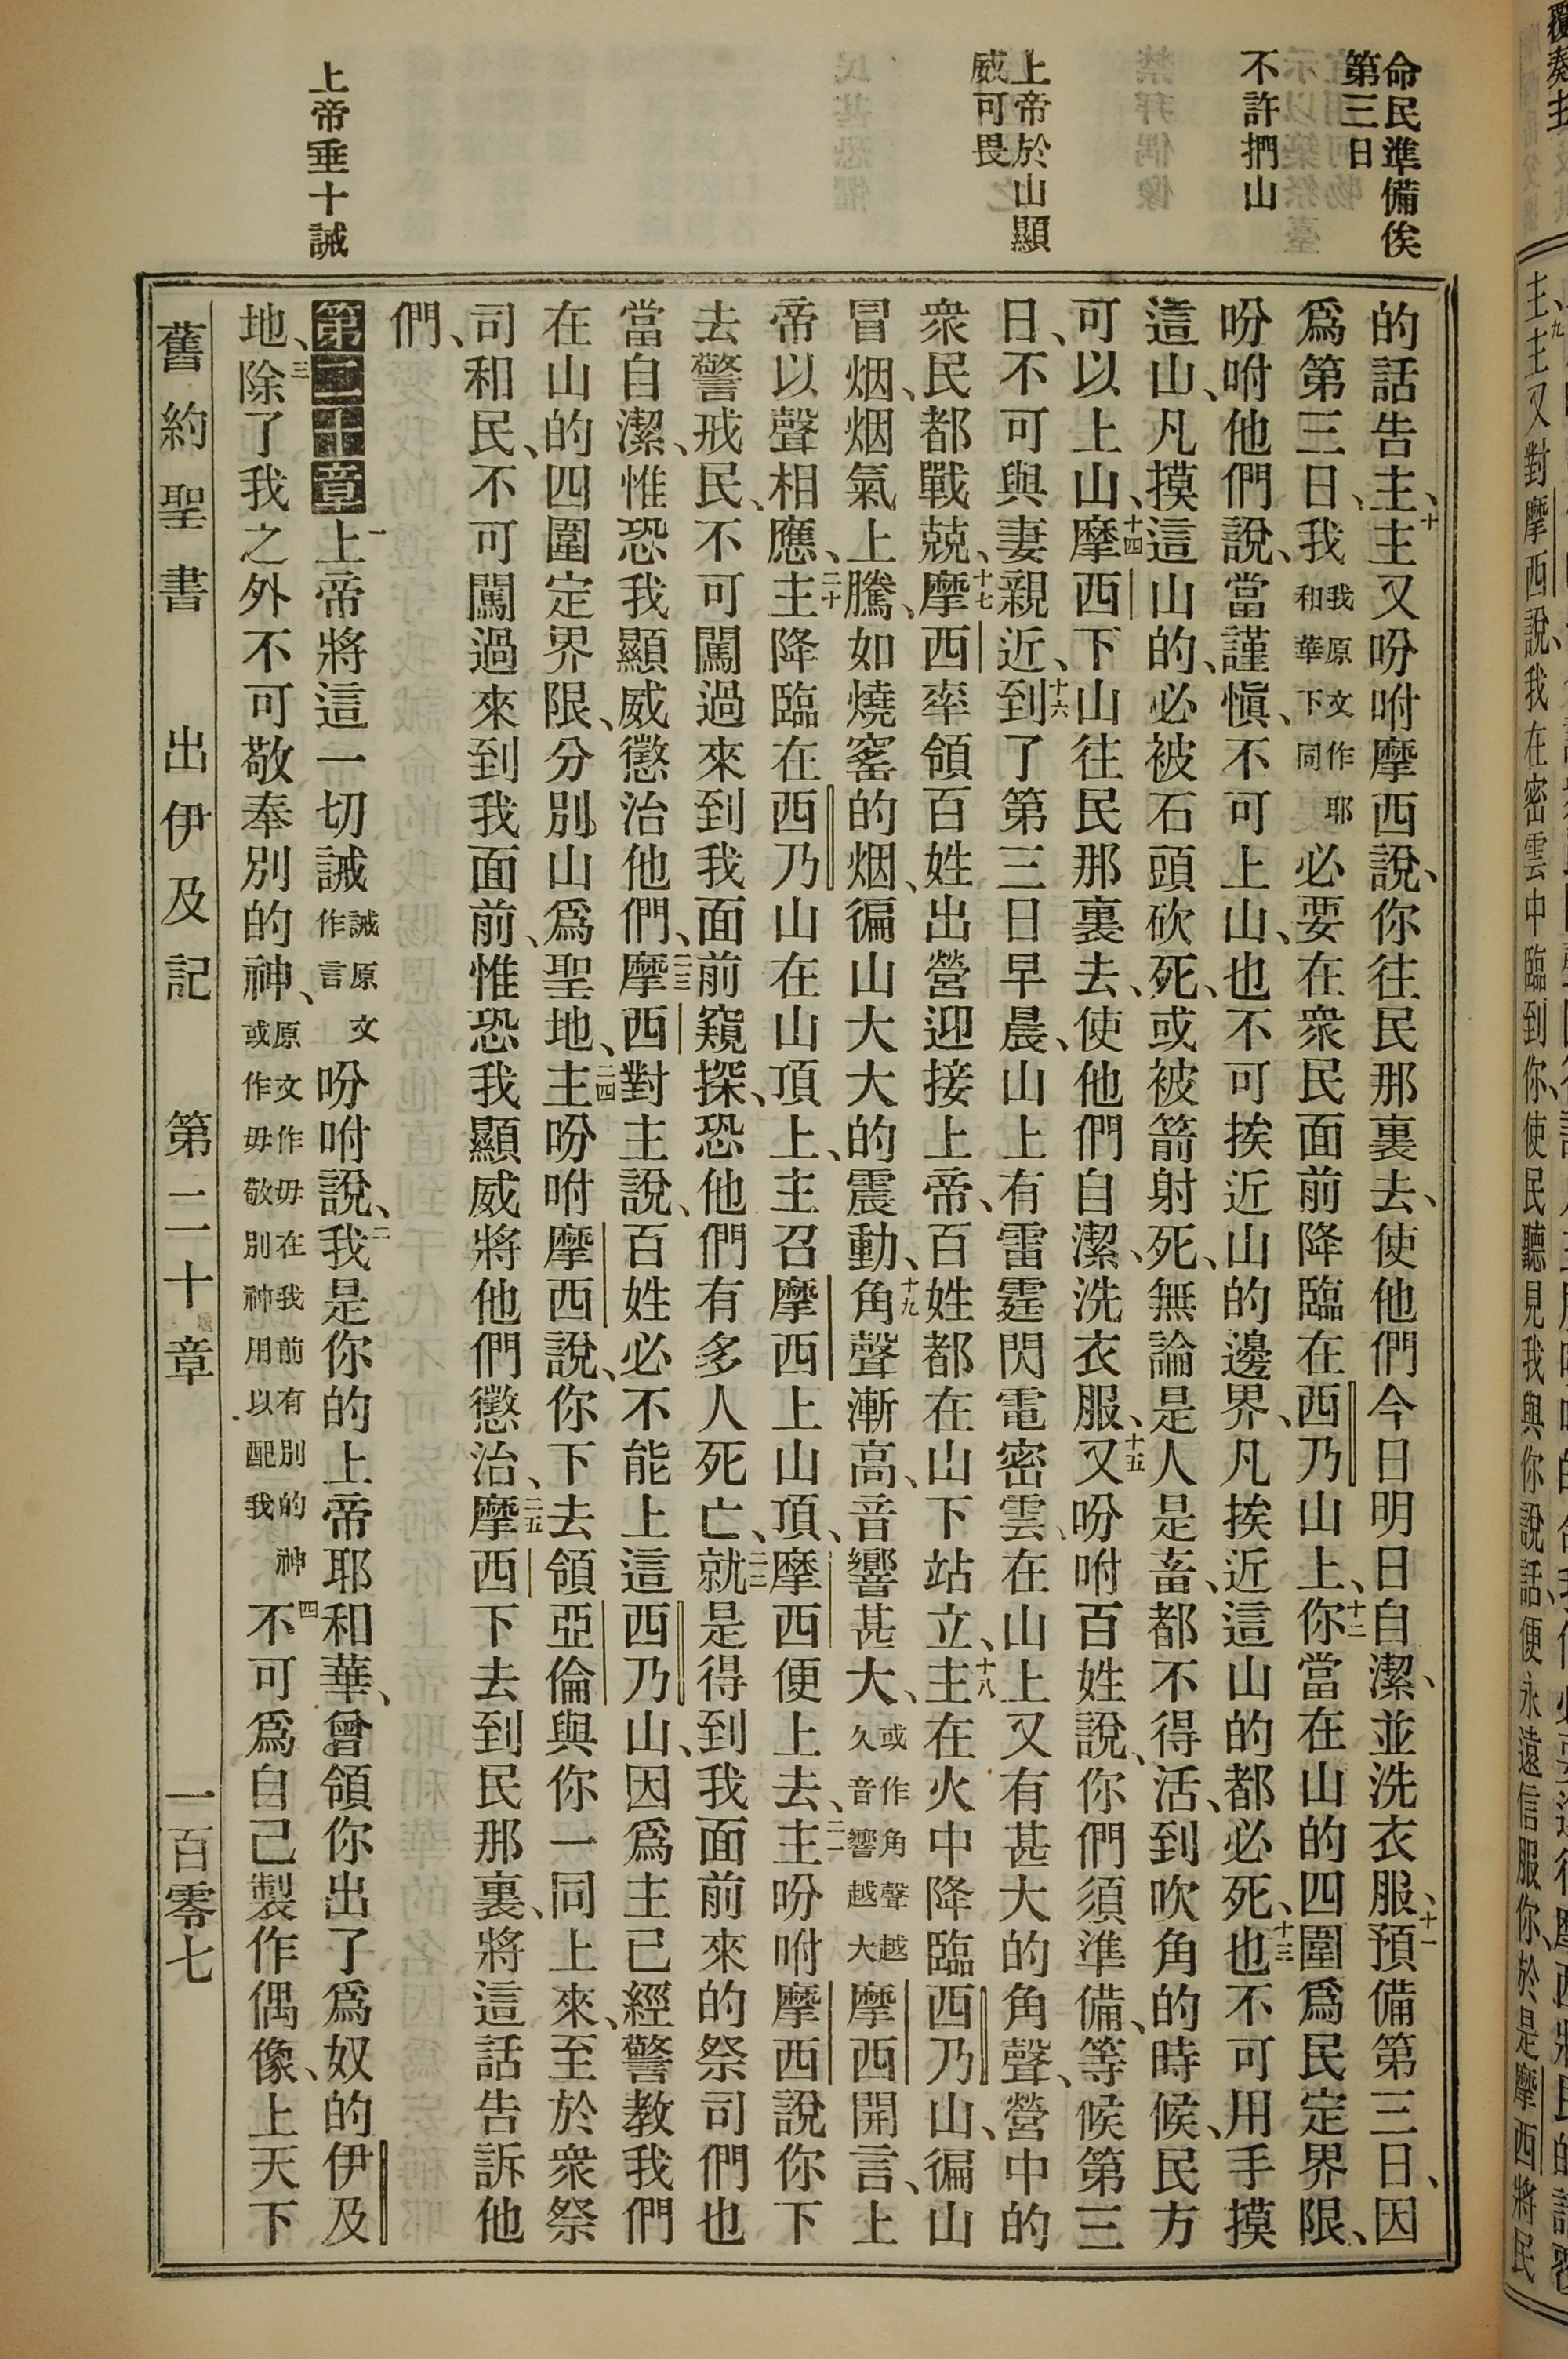 命民準備俟
第三日
不許捫山
上帝於山顯
威可畏
上帝垂十誡
的話告主、十主又吩咐摩西說、你往民那裏去、使他們今日明日自潔、並洗衣服、十一預備第三日、因
爲第三日、我我原文作耶和華下同必要在衆民面前降臨在西乃山上、十二你當在山的四圍爲民定界限、
吩咐他們說、當謹愼、不可上山、也不可挨近山的邊界、凡挨近這山的都必死、十三也不可用手摸
這山、凡摸這山的、必被石頭砍死、或被箭射死、無論是人是畜、都不得活、到吹角的時候、民方
可以上山、十四摩西下山往民那裏去、使他們自潔、洗衣服、十五又吩咐百姓說、你們須準備、等候第三
日、不可與妻親近、十六到了第三日早晨、山上有雷霆閃電密雲、在山上又有甚大的角聲、營中的
衆民都戰兢、十七摩西率領百姓出營迎接上帝、百姓都在山下站立、十八主在火中降臨西乃山、徧山
冒烟、烟氣上騰、如燒窰的烟、徧山大大的震動、十九角聲漸高、音響甚大、或作角聲越久音響越大摩西開言、上
帝以聲相應、二十主降臨在西乃山在山頂上、主召摩西上山頂、摩西便上去、二一主吩咐摩西說你下
去警戒民、不可闖過來到我面前窺探、恐他們有多人死亡、二二就是得到我面前來的祭司們也
當自潔、惟恐我顯威懲治他們、二三摩西對主說、百姓必不能上這西乃山、因爲主已經警教我們
在山的四圍定界限、分別山爲聖地、二四主吩咐摩西說、你下去領亞倫與你一同上來、至於衆祭
司和民、不可闖過來到我面前、惟恐我顯威將他們懲治、二五摩西下去到民那裏、將這話告訴他
們、
第二十章一上帝將這一切誡誡原文作言吩咐說、二我是你的上帝耶和華、曾領你出了爲奴的伊及
地、三除了我之外不可敬奉別的神、原文作毋在我前有別的神或作毋敬別神用以配我四不可爲自己製作偶像、上天下
舊約聖書 出伊及記 第二十章 一百零七